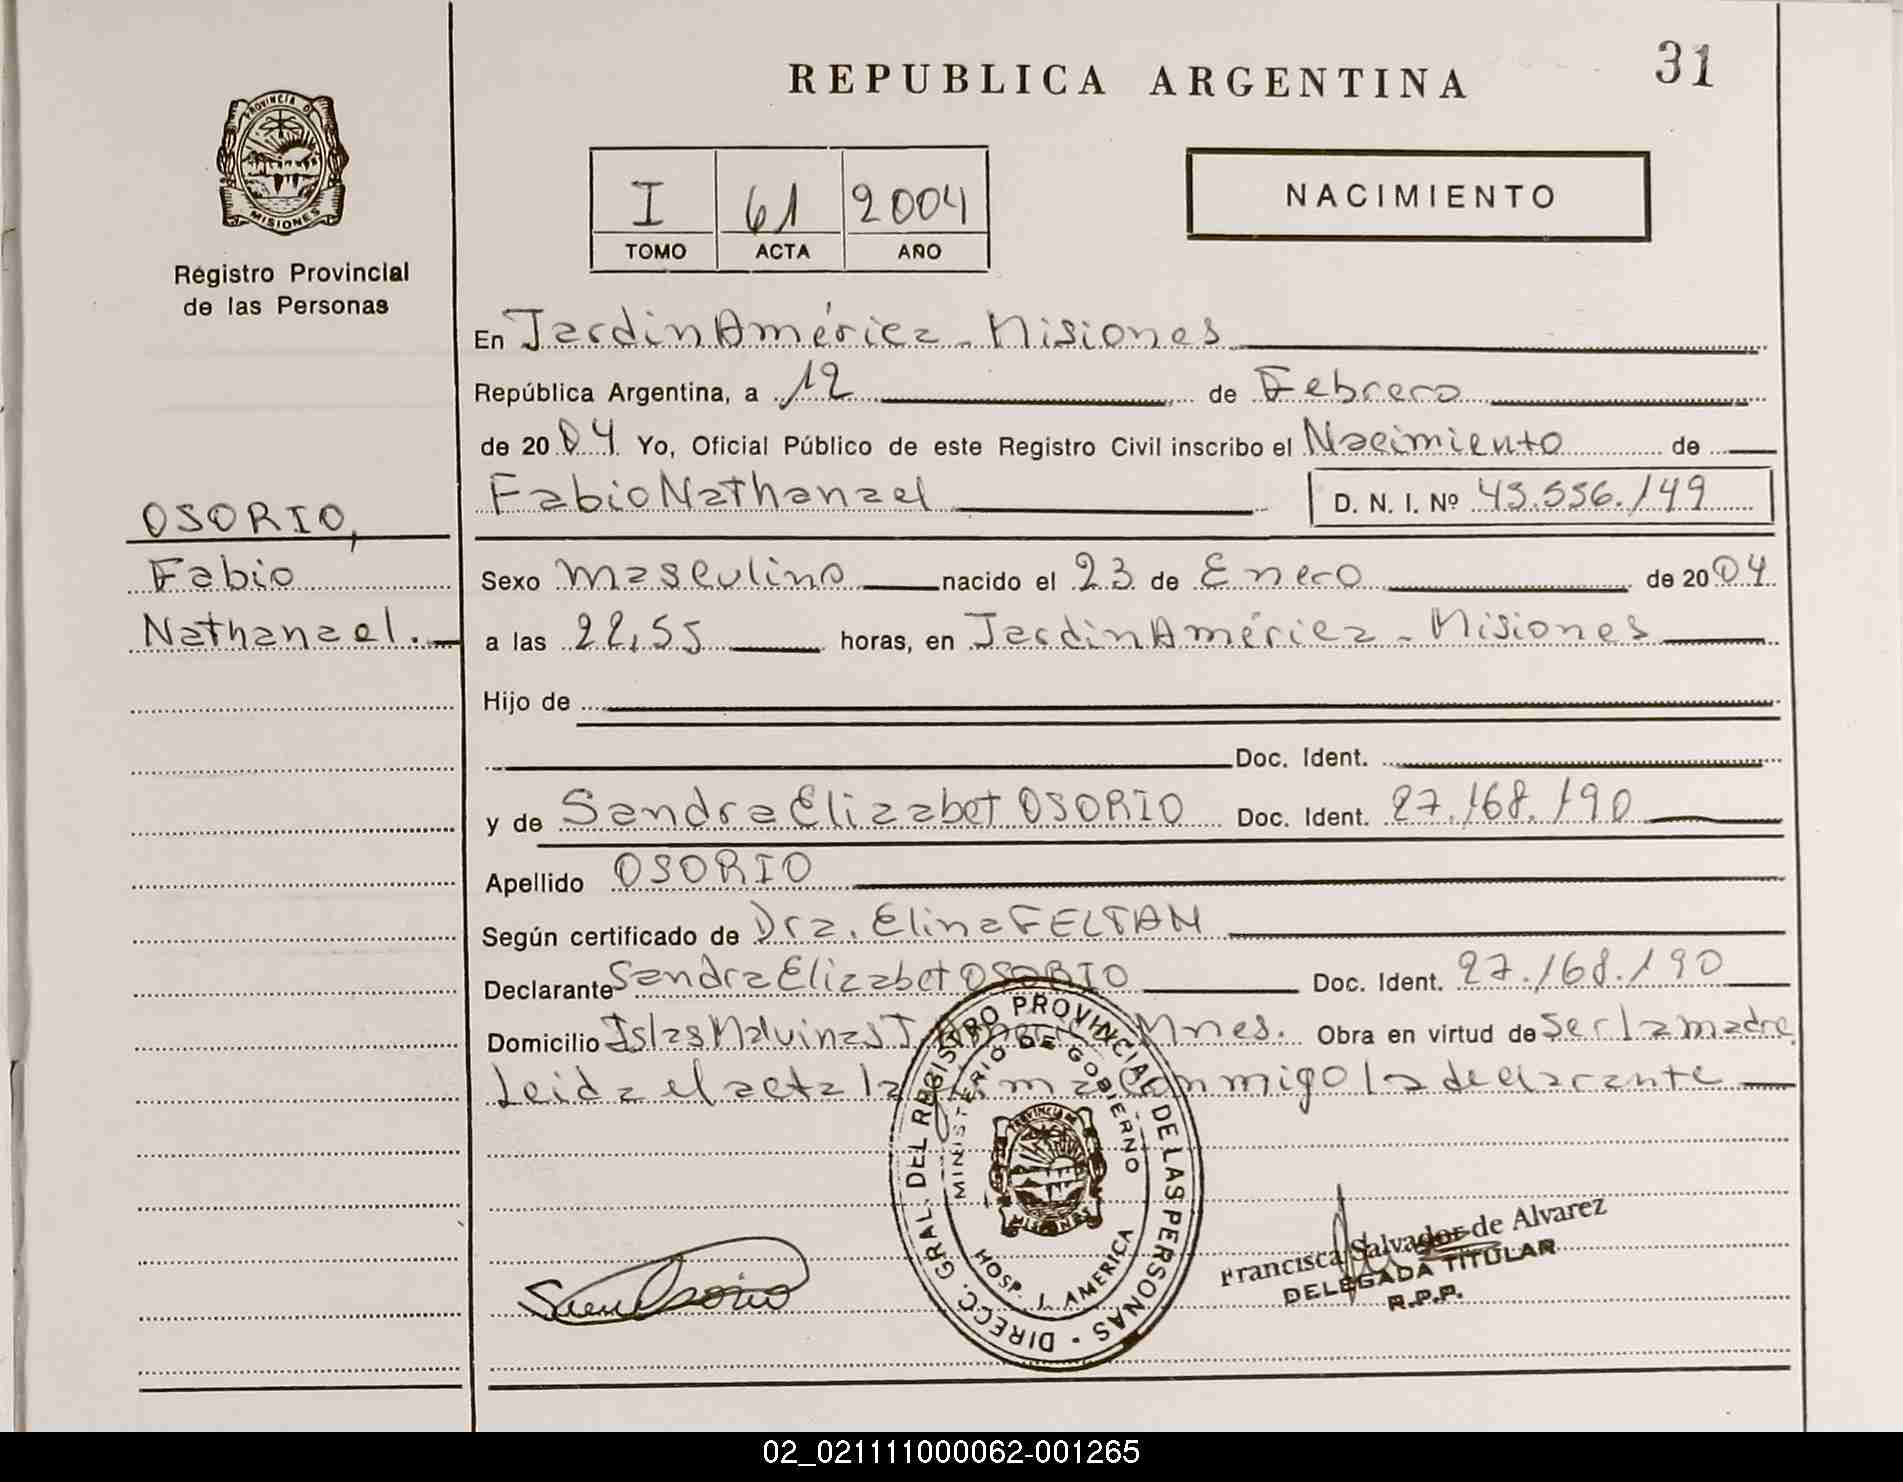 REPUBLICA ARGENTINA
31
PROVINCIA DE
MISIONES
Registro Provincial
de las Personas
I 61 2004
TOMO ACTA AÑO
NACIMIENTO
En Jardin América - Misiones
República Argentina, a 12 de Febrero
de 2004 Yo, Oficial Público de este Registro Civil inscribo el Nacimiento de
Fabio Nathanael D. N. I. Nº 45.556.149
OSORIO,
Fabio
Nathanael.
Sexo masculino nacido el 23 de Enero de 2004
a las 22,55 horas, en Jardin América - Misiones
Hijo de
Doc. Ident.
y de Sandra Elizabet OSORIO Doc. Ident. 27.168.190
Apellido OSORIO
Según certificado de Dra. Elina FELTAN
Declarante Sandra Elizabet OSORIO Doc. Ident. 27.168.190
Domicilio Islas Malvinas J. América Mnes. Obra en virtud de ser la madre
Leida el acta la firma conmigo la declarante
DIRECC. GRAL. DEL REGISTRO PROVINCIAL DE LAS PERSONAS
MINISTERIO DE GOBIERNO
HOSP. J. AMERICA
PROVINCIA DE
MISIONES
Osorio
Francisca Salvador de Alvarez
DELEGADA TITULAR
R.P.P.
02_021111000062-001265